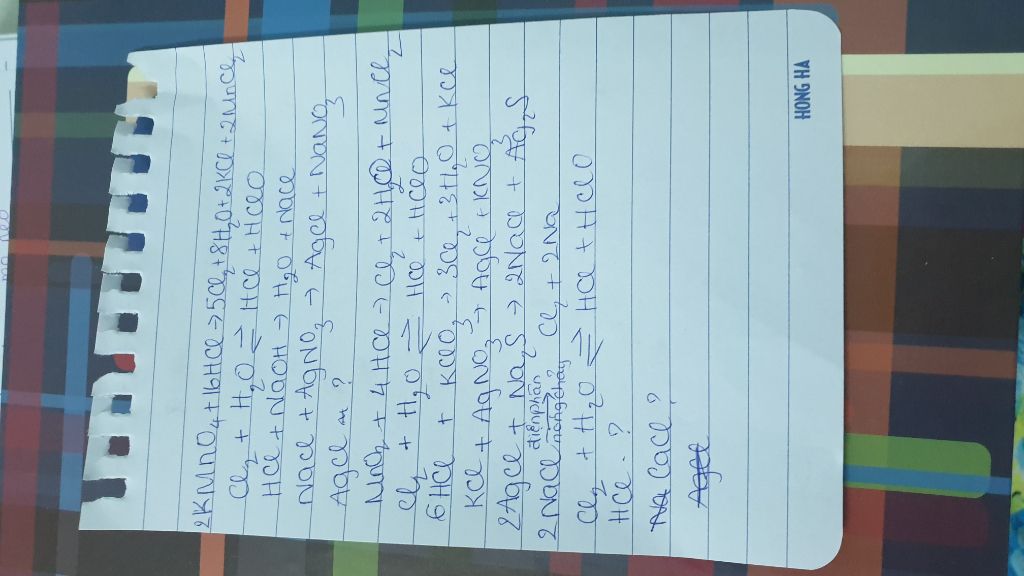 2KMnO4 + 16HCl → 5Cl2 + 8H2O + 2KCl + 2MnCl2
Cl2 + H2O ⇌ HCl + HClO
HCl + NaOH → H2O + NaCl
NaCl + AgNO3 → AgCl + NaNO3
AgCl ?
MnO2 + 4HCl → Cl2 + 2H2O + MnCl2
Cl2 + H2O ⇌ HCl + HClO
6HCl + KClO3 → 3Cl2 + 3H2O + KCl
KCl + AgNO3 → AgCl + KNO3
2AgCl + Na2S → 2NaCl + Ag2S
2NaCl điện phân nóng chảy → Cl2 + 2Na
Cl2 + H2O ⇌ HCl + HClO
HCl - ?
Na CaCl ?
AgCl
HONG HA